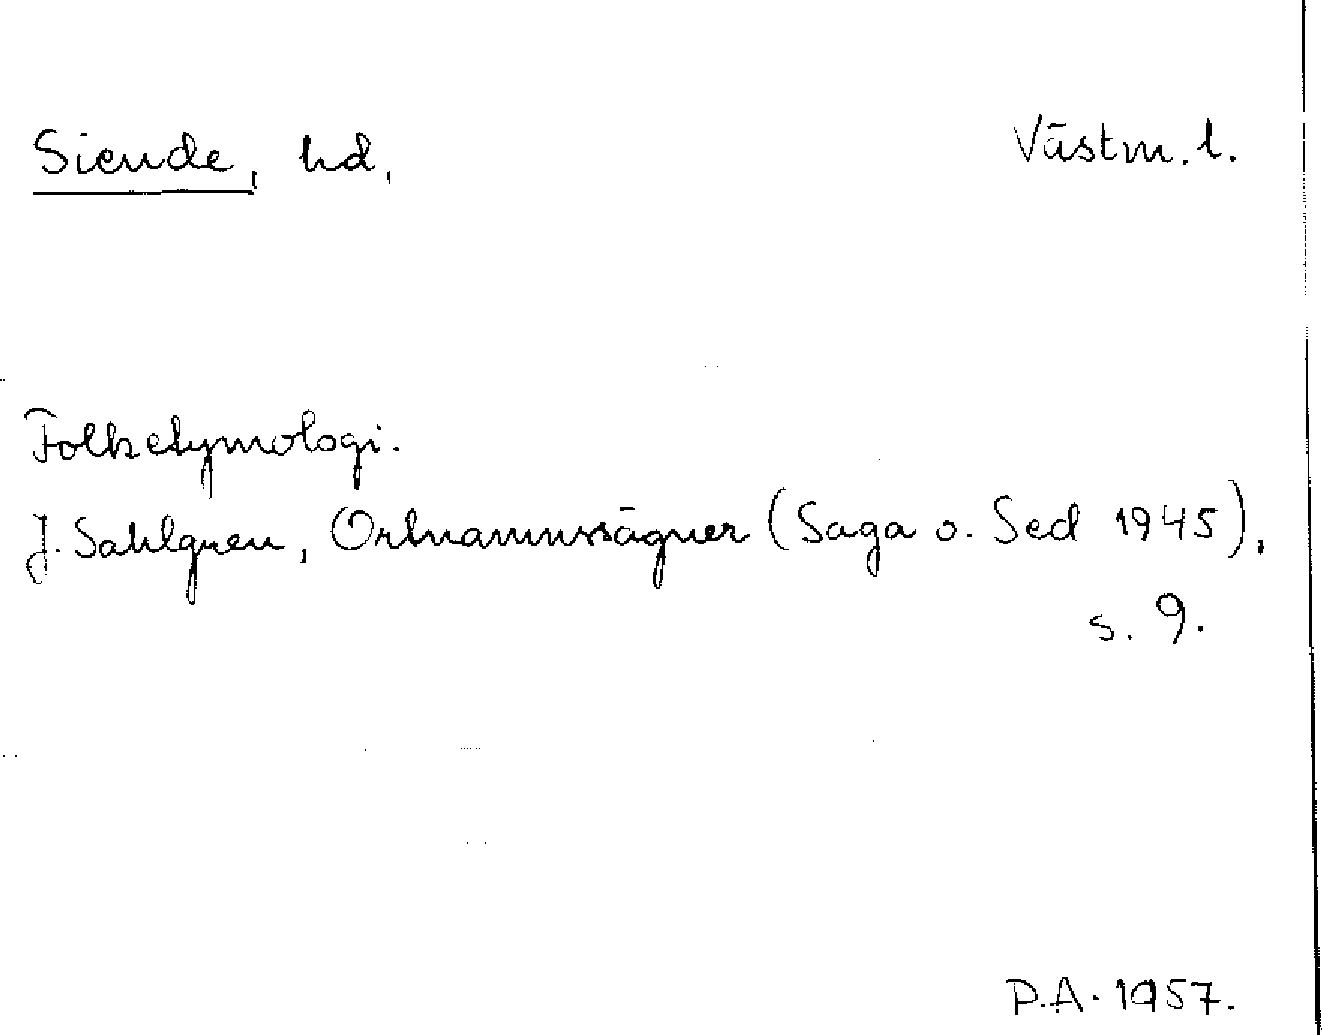 Siende, hd, Västm. l.
Folketymologi.
J. Sahlgren, Ortnamnssägner (Saga o. Sed 1945),
s. 9.
P.A. 1957.